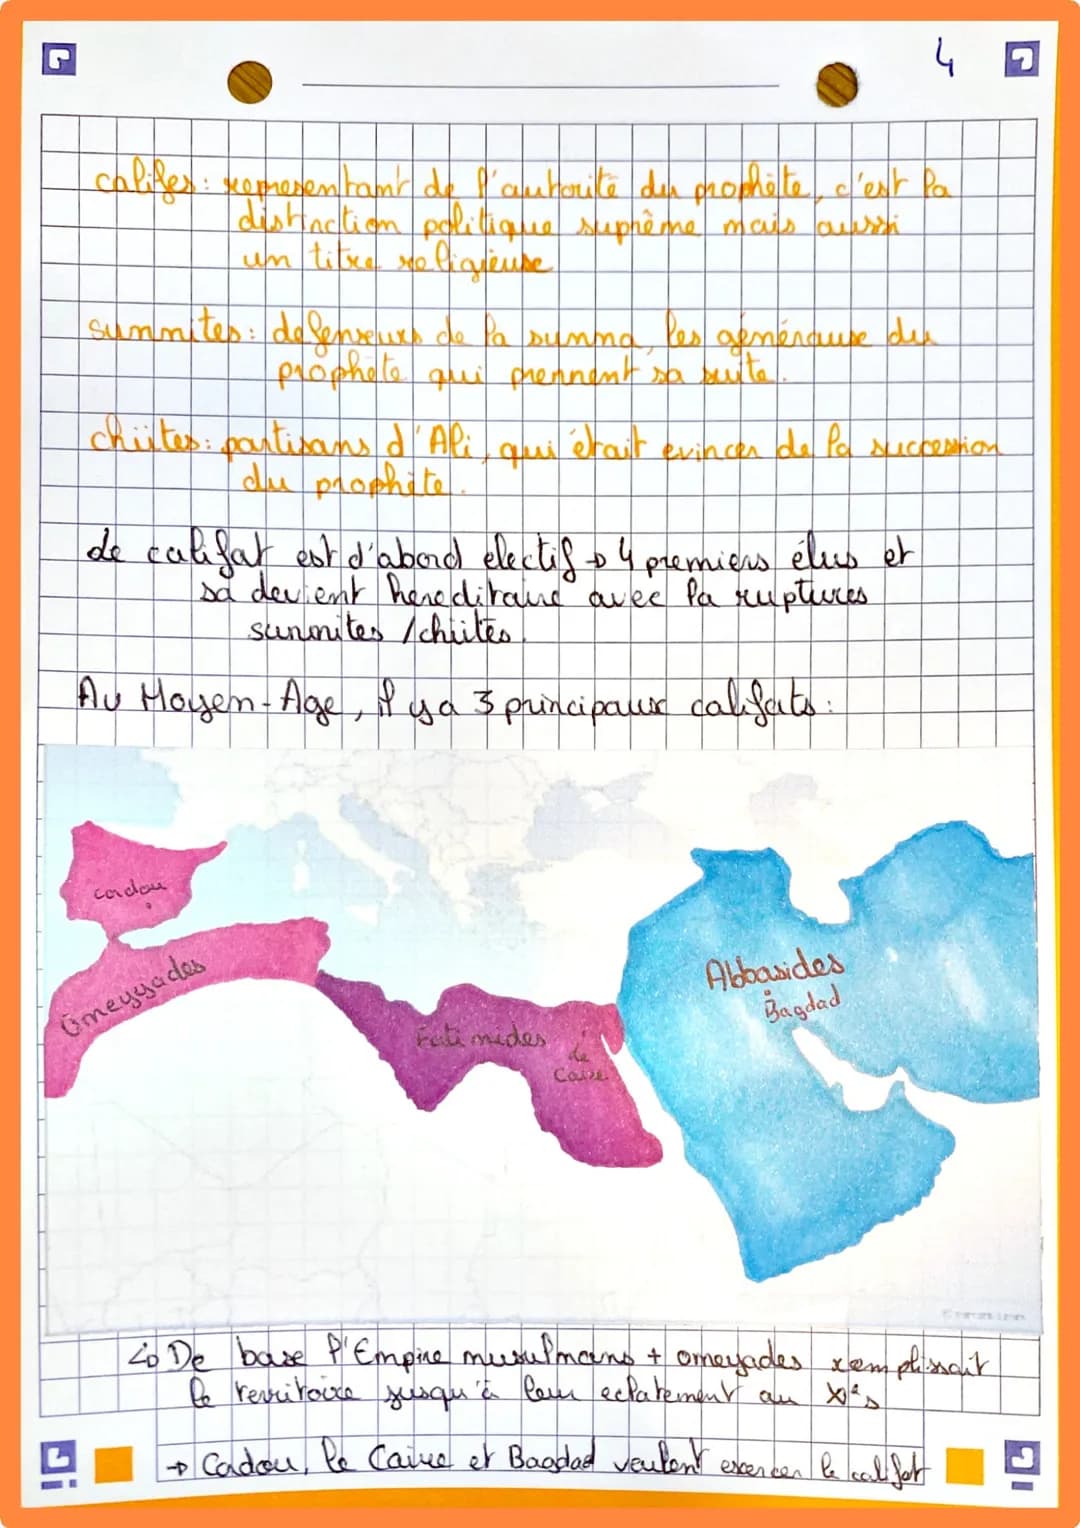 4
califes: representant de l'autorité du prophète, c'est la
distinction politique suprême mais aussi
un titre religieuse
sunnites: defenseurs de la sunna, les généraux du
prophète qui prennent sa suite.
chiites: partisans d'Ali, qui était evincer de la succession
du prophète.
Le califat est d'abord electif → 4 premiers élus et
sa devient hereditaire avec la ruptures
sunnites / chiites.
Au Moyen-Age, il y a 3 principaux califats:
cordou
Omeyyades
Fatimides
le
Caire
Abbasides
Bagdad
↳ De base l'Empire musulmans + omeyades remplissait
le territoire jusqu'à leur eclatement au
→ Cadou, le Caire et Bagdad veulent exercer le califat